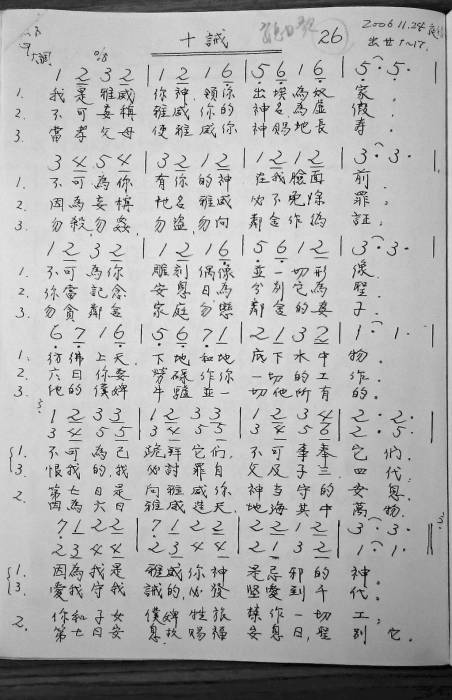 2006.11.24
十誡
26
出廿1~17.
6/8
大調
1 2 3 2 | 1 2 1 6 | 5 6 1 6 | 5 · 5 ·
1. 我是雅威 你神,領你 出埃為奴 家,
2. 不可妄稱 雅威你的 神名為虛 假,
3. 當孝父母 使雅威你 神賜地長 壽,
3 4 5 4 | 3 2 1 2 | 1 2 1 2 | 3 · 3 ·
1. 不可為你 有你的神 在我臉面 前.
2. 因為妄稱 他名雅威 必不免你 罪.
3. 勿殺,勿姦, 勿盜,勿向 鄰舍作偽 証.
1 2 3 2 | 1 2 1 6 | 5 6 1 2 | 3 · 3 ·
1. 不可為你 雕刻偶像 並一切形 像,
2. 你當記念 安息日,為 分別它為 聖.
3. 勿貪鄰舍 家庭,勿戀 鄰舍的妻 子.
6 7 1 6 | 5 6 7 1 | 2 1 3 2 | 1 · 1 ·
1. 彷佛上天, 下地和地 底下水中 物.
2. 六日你要 勞碌作你 一切的工 作.
3. 他的僕婢 牛驢並一 切他所有 的.
1 2 3 3 | 1 2 3 3 | 1 2 3 4 | 2 · 2 ·
3 4 5 5 | 3 4 5 5 | 3 4 5 6 | 2 · 5 ·
1. 不可為己 跪拜它們, 不可事奉 它們,
3. 恨我的,我 必討罪自 父及子三 四代,
2. 第七日是 向雅威你 神當守的 安息,
因為六日 雅威造天, 地與海其中 萬物,
7 1 2 2 | 7 1 2 2 | 2 2 1 2 | 3 · 3 ·
2 3 4 4 | 2 3 4 4 | 2 1 3 2 | 1 · 1 ·
1. 因為我是 雅威,你神 是忌邪的 神.
3. 愛我守我 誡的,必發 堅愛到千 代.
2. 你和子女 僕婢牲旅 禁作一切 工;
第七日安 息,故賜福 安息日,聖 別它.